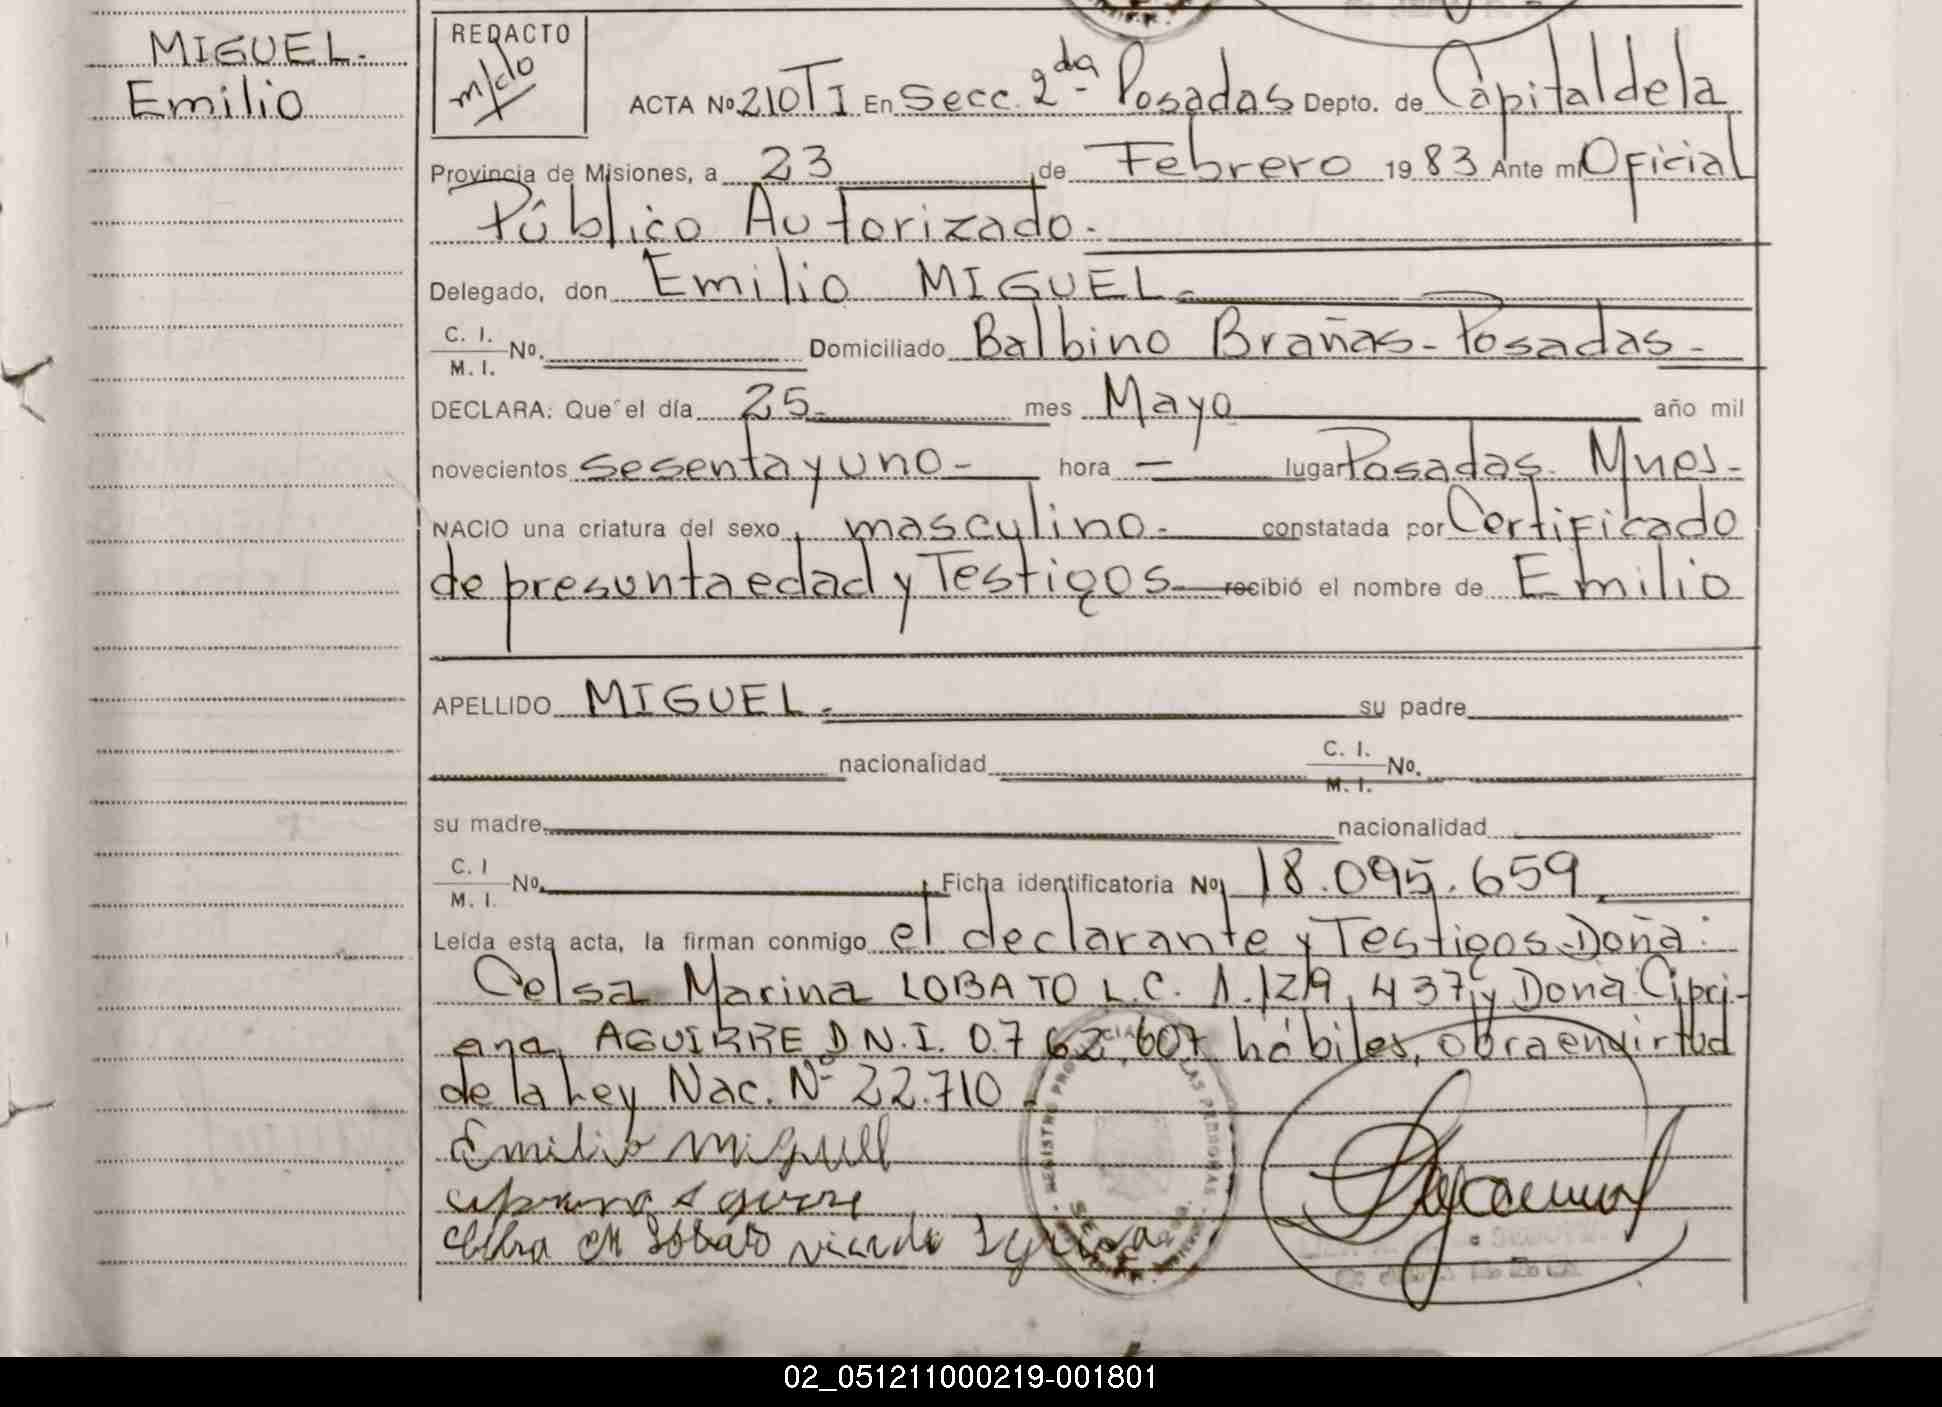 MIGUEL.
Emilio
REDACTO
ACTA Nº 210 TI En Secc. 2da Posadas Depto. de Capital de la
Provincia de Misiones, a 23 de Febrero 1983 Ante mi Oficial
Público Autorizado.
Delegado, don Emilio MIGUEL.
C. I. / M. I. Nº. Domiciliado Balbino Brañas - Posadas -
DECLARA: Que el día 25 mes Mayo año mil
novecientos sesenta y uno - hora — lugar Posadas. Mnes.
NACIO una criatura del sexo masculino. constatada por Certificado
de presunta edad y Testigos recibió el nombre de Emilio
APELLIDO MIGUEL. su padre
nacionalidad C. I. / M. I. Nº.
su madre nacionalidad
C. I / M. I. Nº. Ficha identificatoria Nº 18.095.659
Leída esta acta, la firman conmigo el declarante y Testigos Doña:
Celsa Marina LOBATO L.C. 1.129.437 y Doña Cipri-
ana AGUIRRE D.N.I. 0.762.607 hábiles, obra en virtud
de la Ley Nac. Nº 22.710
Emilio Miguel
REGISTRO PROVINCIAL DE LAS PERSONAS
02_051211000219-001801